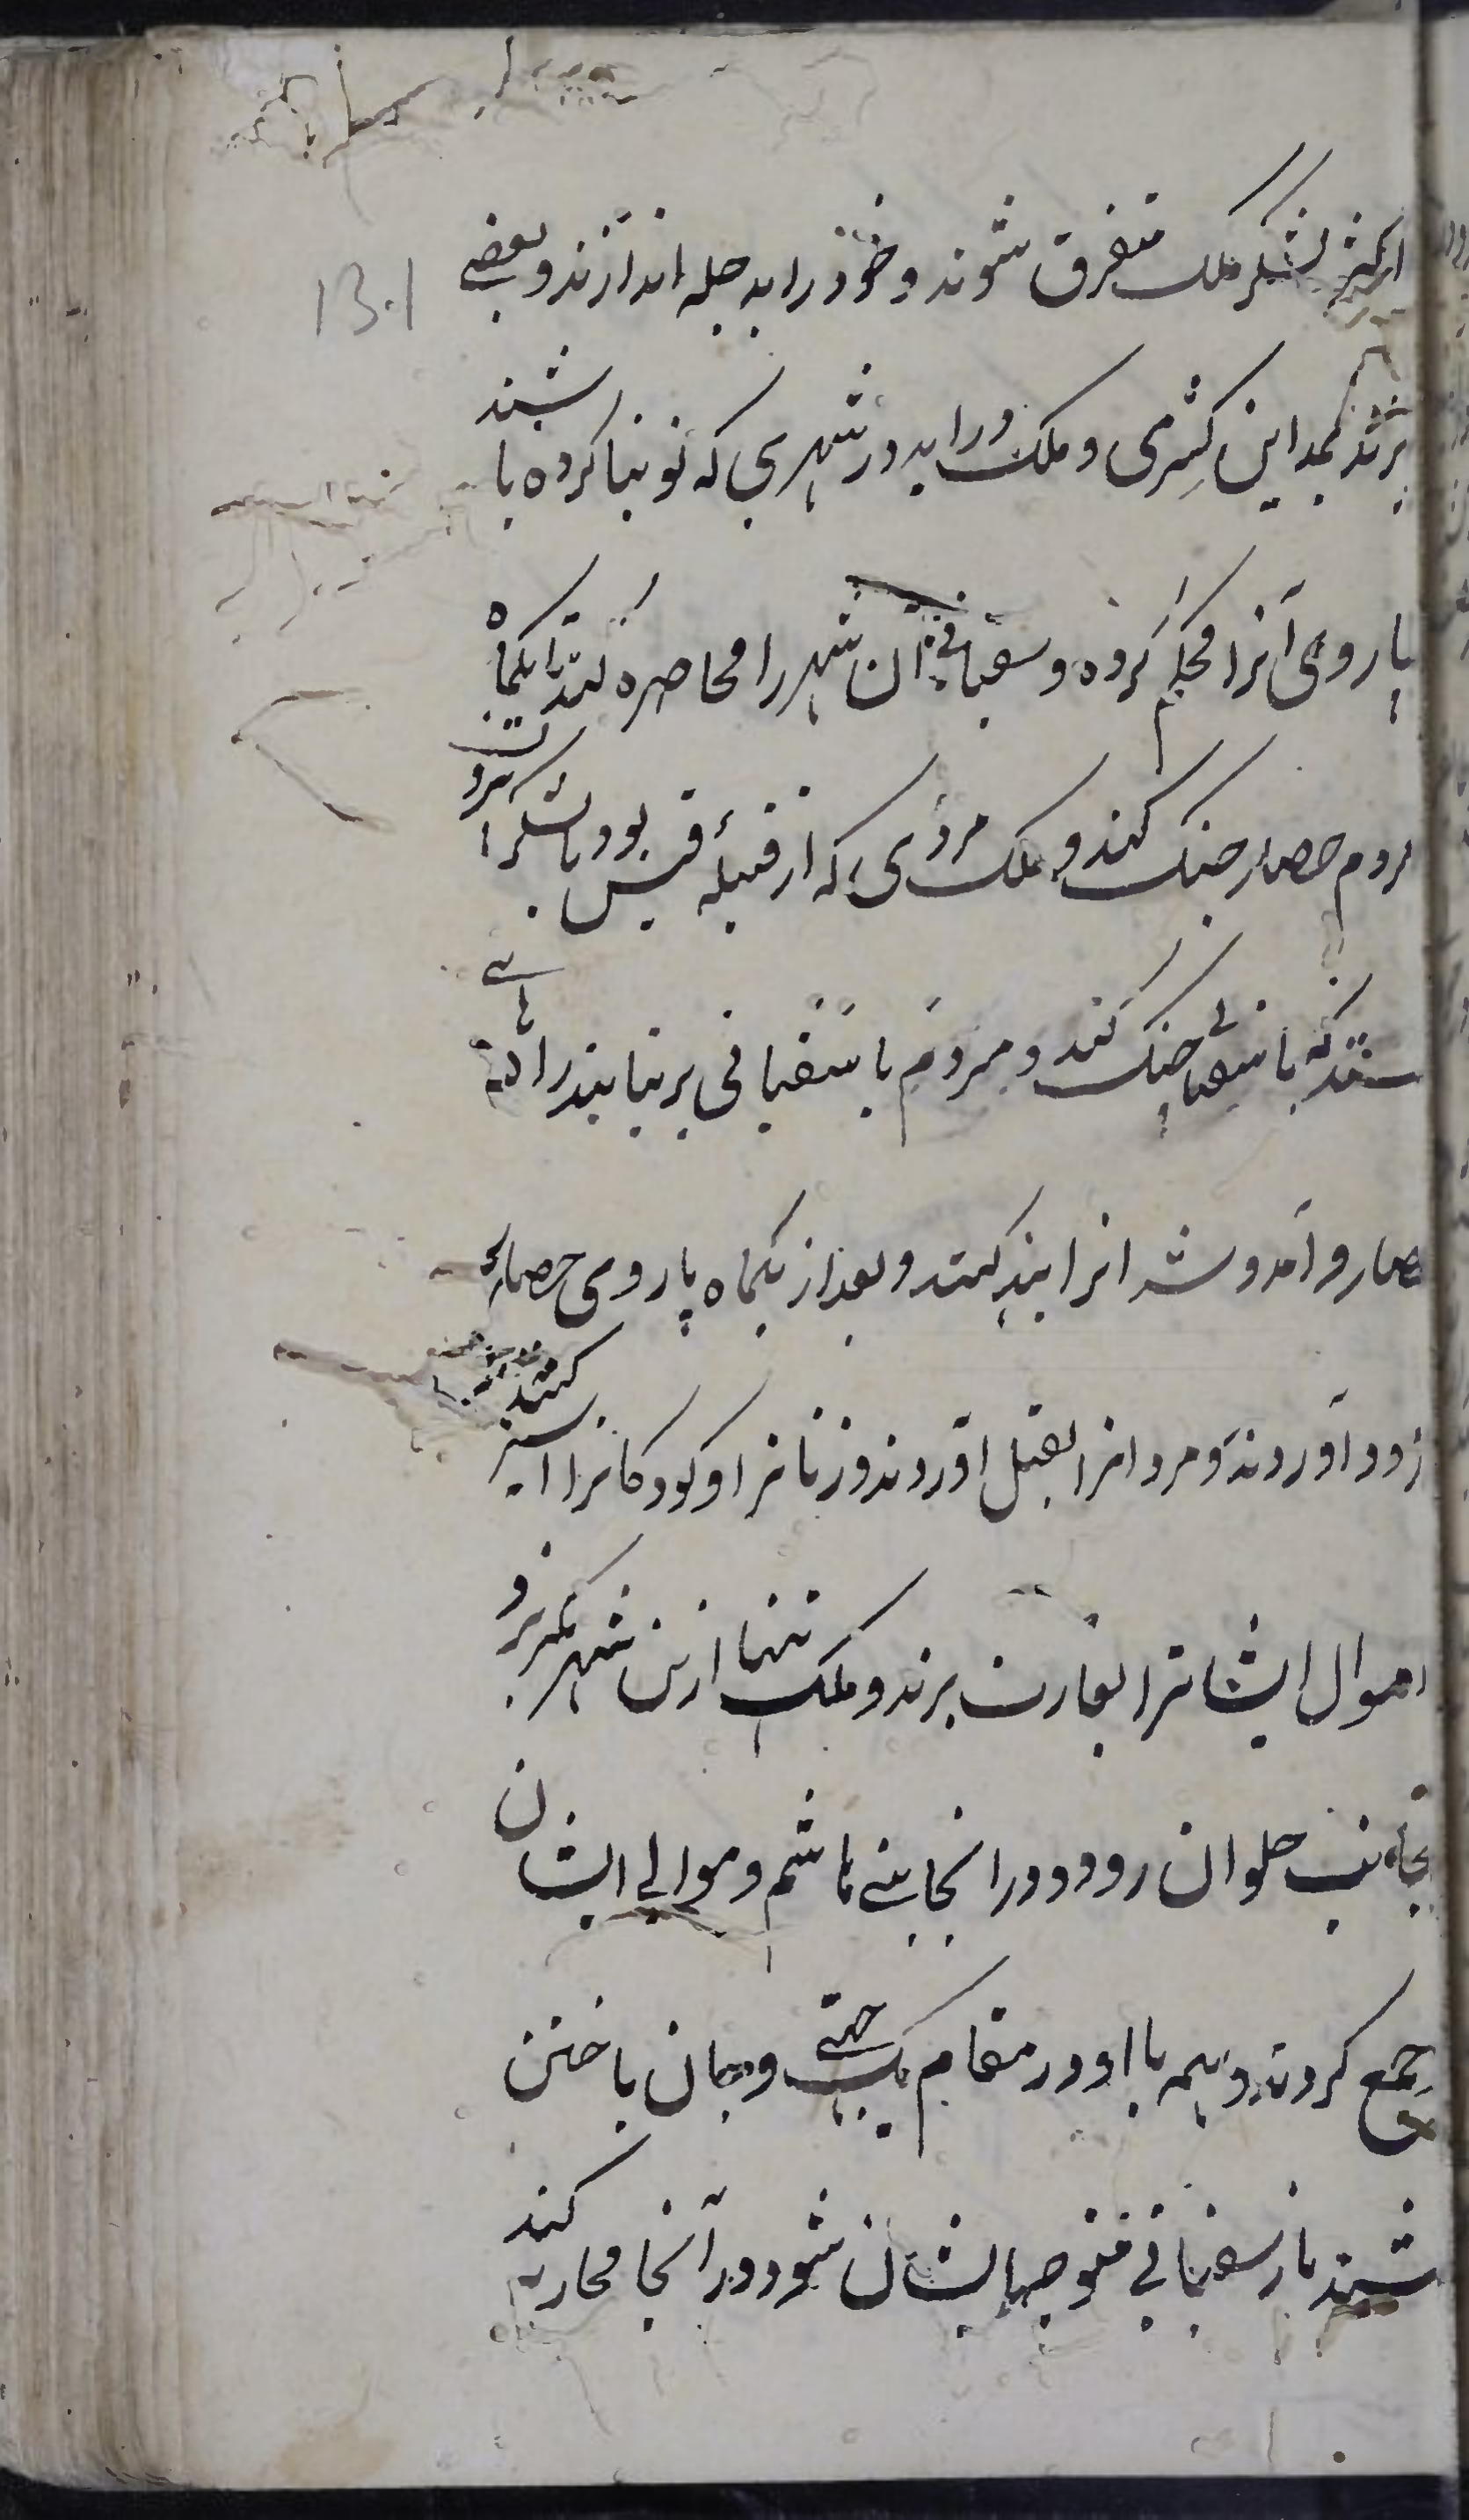 اکثر لشکر ملک متفرق شوند و خود را به جله اندازند و بعضی
131
برند بمداین کسری و ملک در اید در شهری که نو بنا کرده باشند
باروی آنرا محکم کرده و سفیانی آن شهر را محاصره کند تا یکماه
مردم حصار جنک کنند و ملک مردی که از قبیله قیس بود با لشکر
ستد که با سفیانی جنک کند و مردم با سفیانی بر نیایند راهی
حصار و آمد و شد انرا بند کنند و بعد از یکماه باروی حصار
زود آوردند و مردانرا بقتل اوردند و زنانرا و کودکانرا اسیر کنند
اموال ایشانرا بغارت برند و ملک تنها ازین شهر بکریزد
بجانب حلوان رود و در انجا بنی هاشم و موالی ایشان
جمع کردند و همه با او در مقام یک جهتی و جان باختن
شند باز سفیانی متوجه ایشان شود و در آنجا محاربه کند